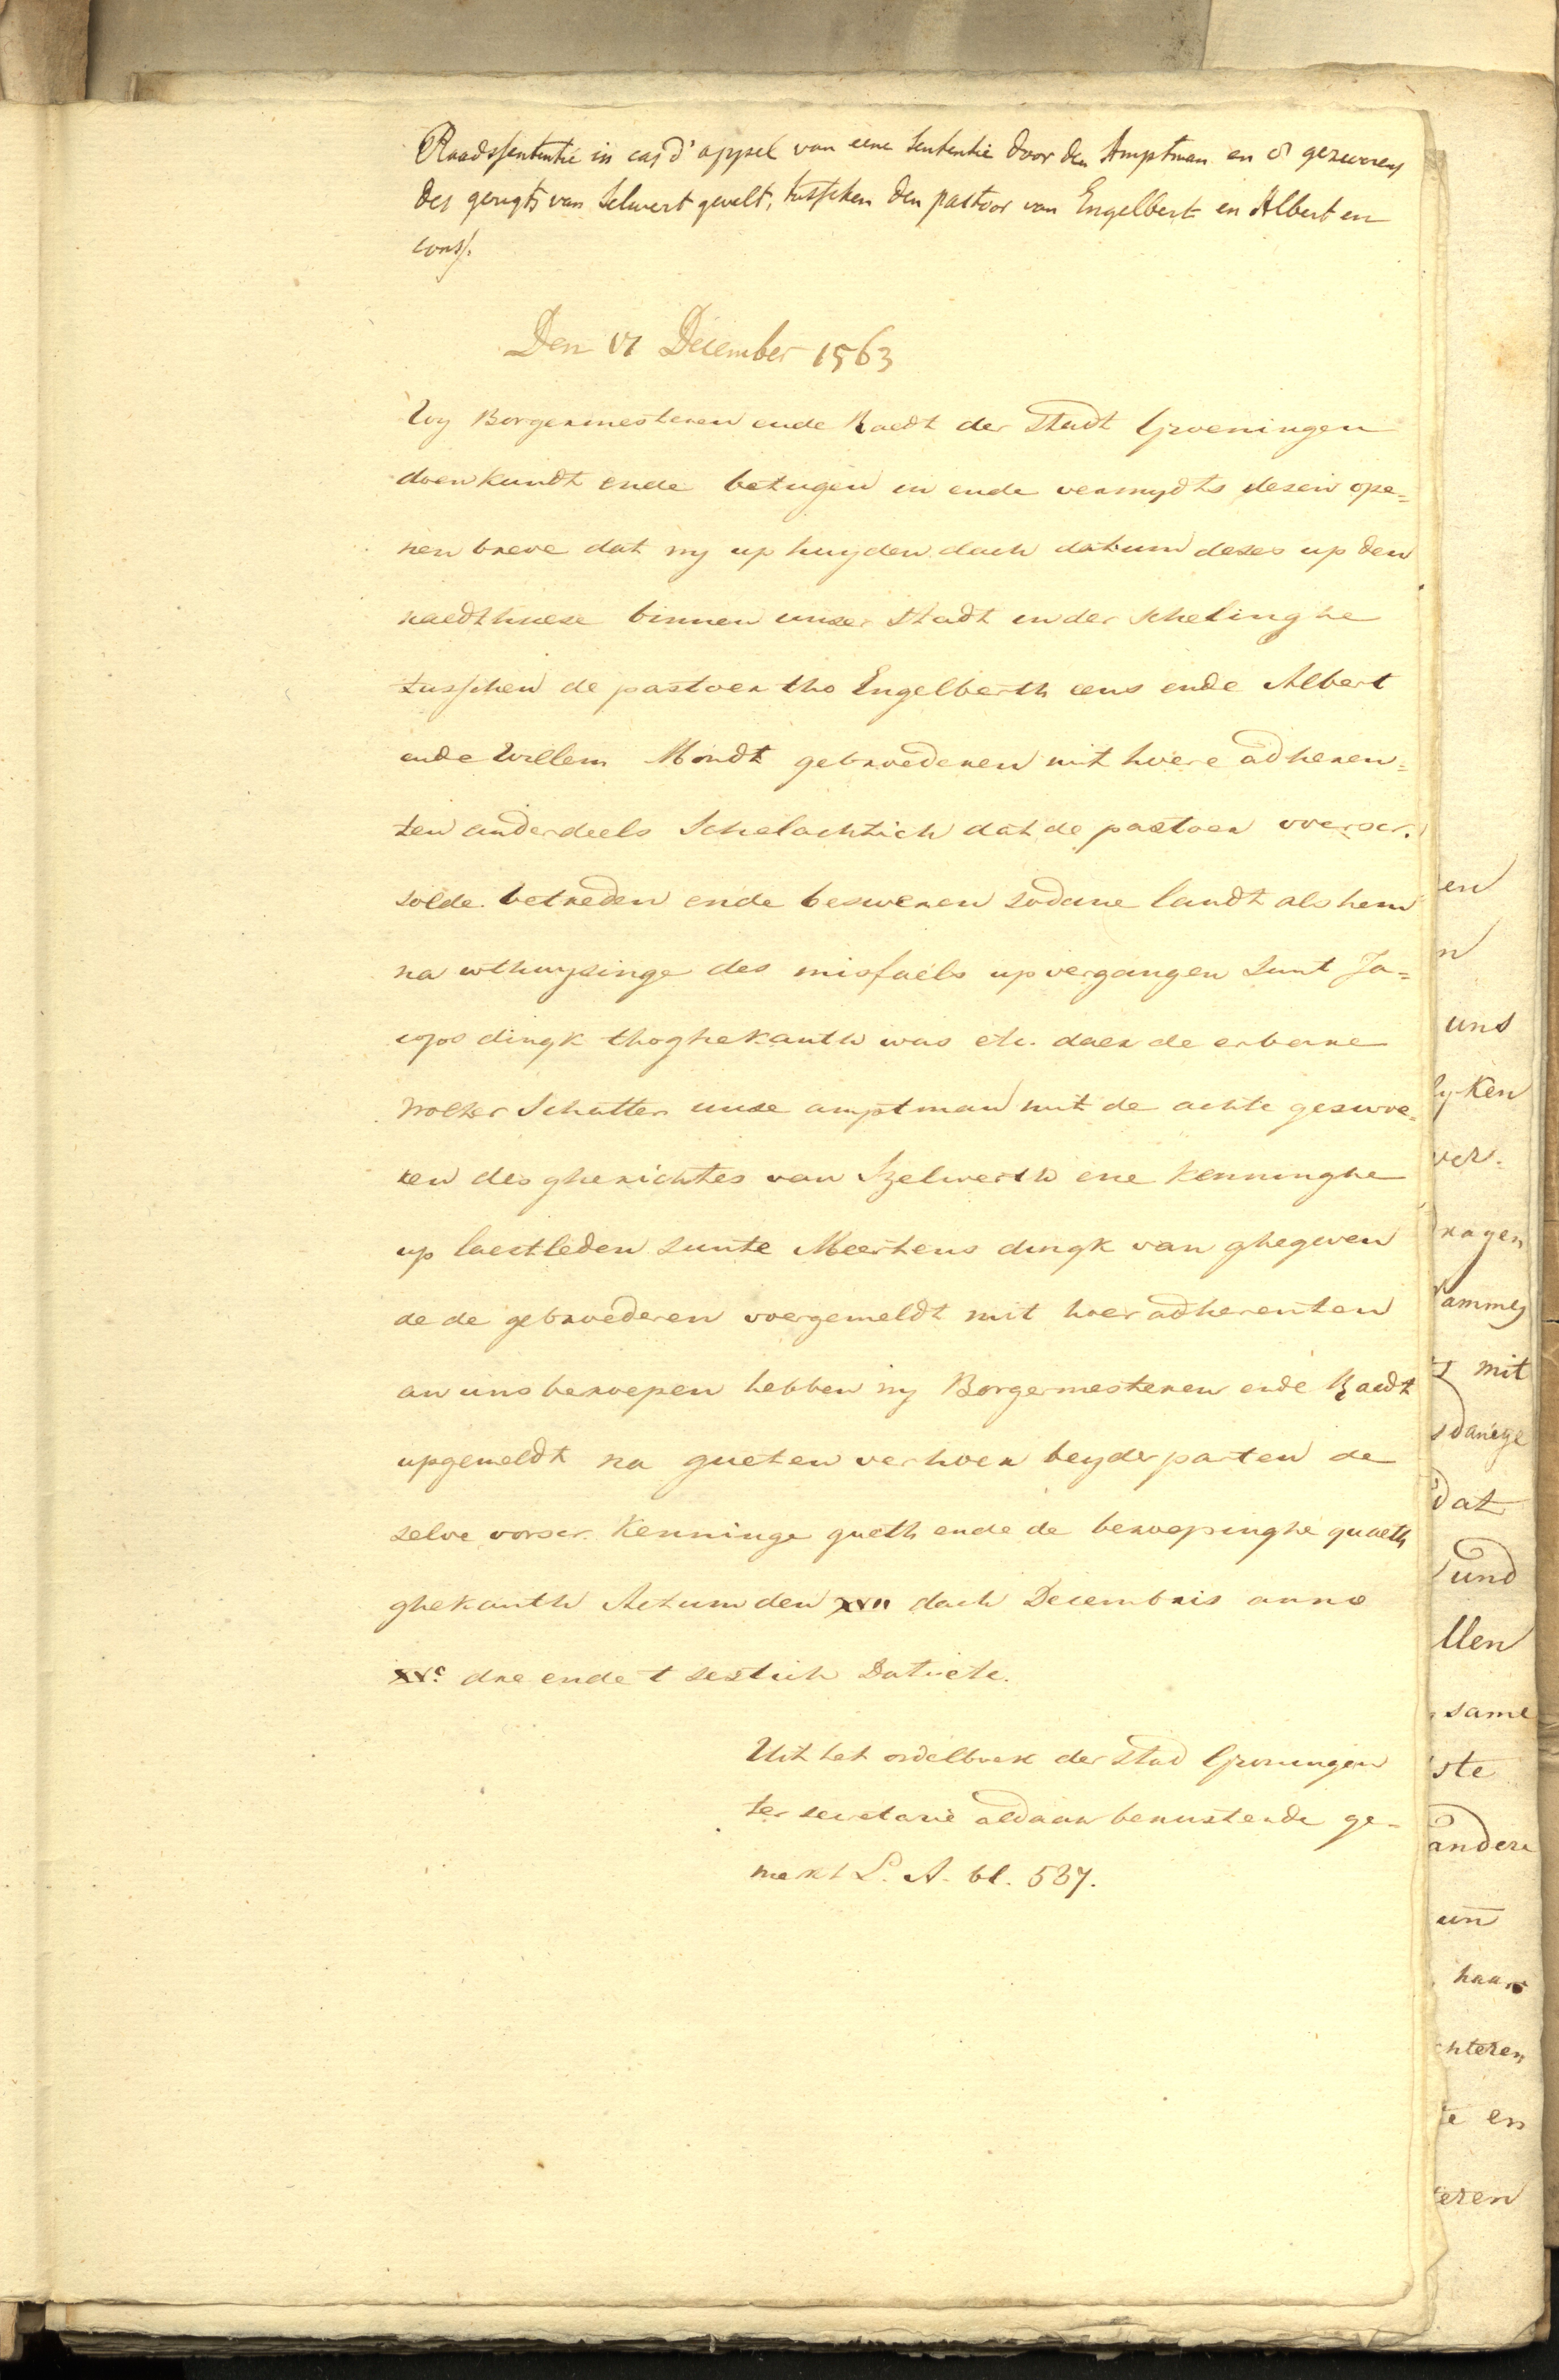 Raadssententie in cas d'appel van eene sententie door den Amptman en 8 gezworen
des gerigts van Selwert gevelt, tusschen den pastoor van Engelbert en Albert en
cons.
Den 17 December 1563
Wy Borgermesteren ende Raedt der Stadt Groeningen
doen kundt ende betugen in ende vermydts desen ope=
nen breve dat wy up huyden dach datum deses up den
raedthuese binnen unser Stadt in der schelinghe
tusschen de pastoer tho Engelberth eens ende Albert
ende Willem Mondt gebroederen mit hoere adheren=
ten anderdeels Schelachtich dat de pastoer voerscr.
solde betreden ende besweren sodane landt als hem
na wthwysinge des misfaels upvergangen Sunt Ja=
cops dingk thoghekanth was etc. daer de erberne
Wolter Schatter unse amptman mit de achte geswore=
ren des gherichtes van Szelwerth ene kenninghe
up laestleden sunte Meertens dingk van ghegeven
de de gebroederen voergemeldt mit hoer adherenten
an uns beroepen hebben wy Borgermesteren ende Raedt
upgemeldt na gueten verhoer beyder parten de
selve vorscr. kenninge gueth ende de beroepinghe quaeth
ghekanth Actum den XVII dach Decembris anno
XVc dre ende tsestich Datu etc.
Uit het ordelboek der stad Groningen
ter secretarie aldaar berustende ge-
merkt L. A. bl. 537.
en
uns
lyken
ver=
ragen
mit
dat
und
llen
same
ste
andere
un
haar
chteren
te en
eren